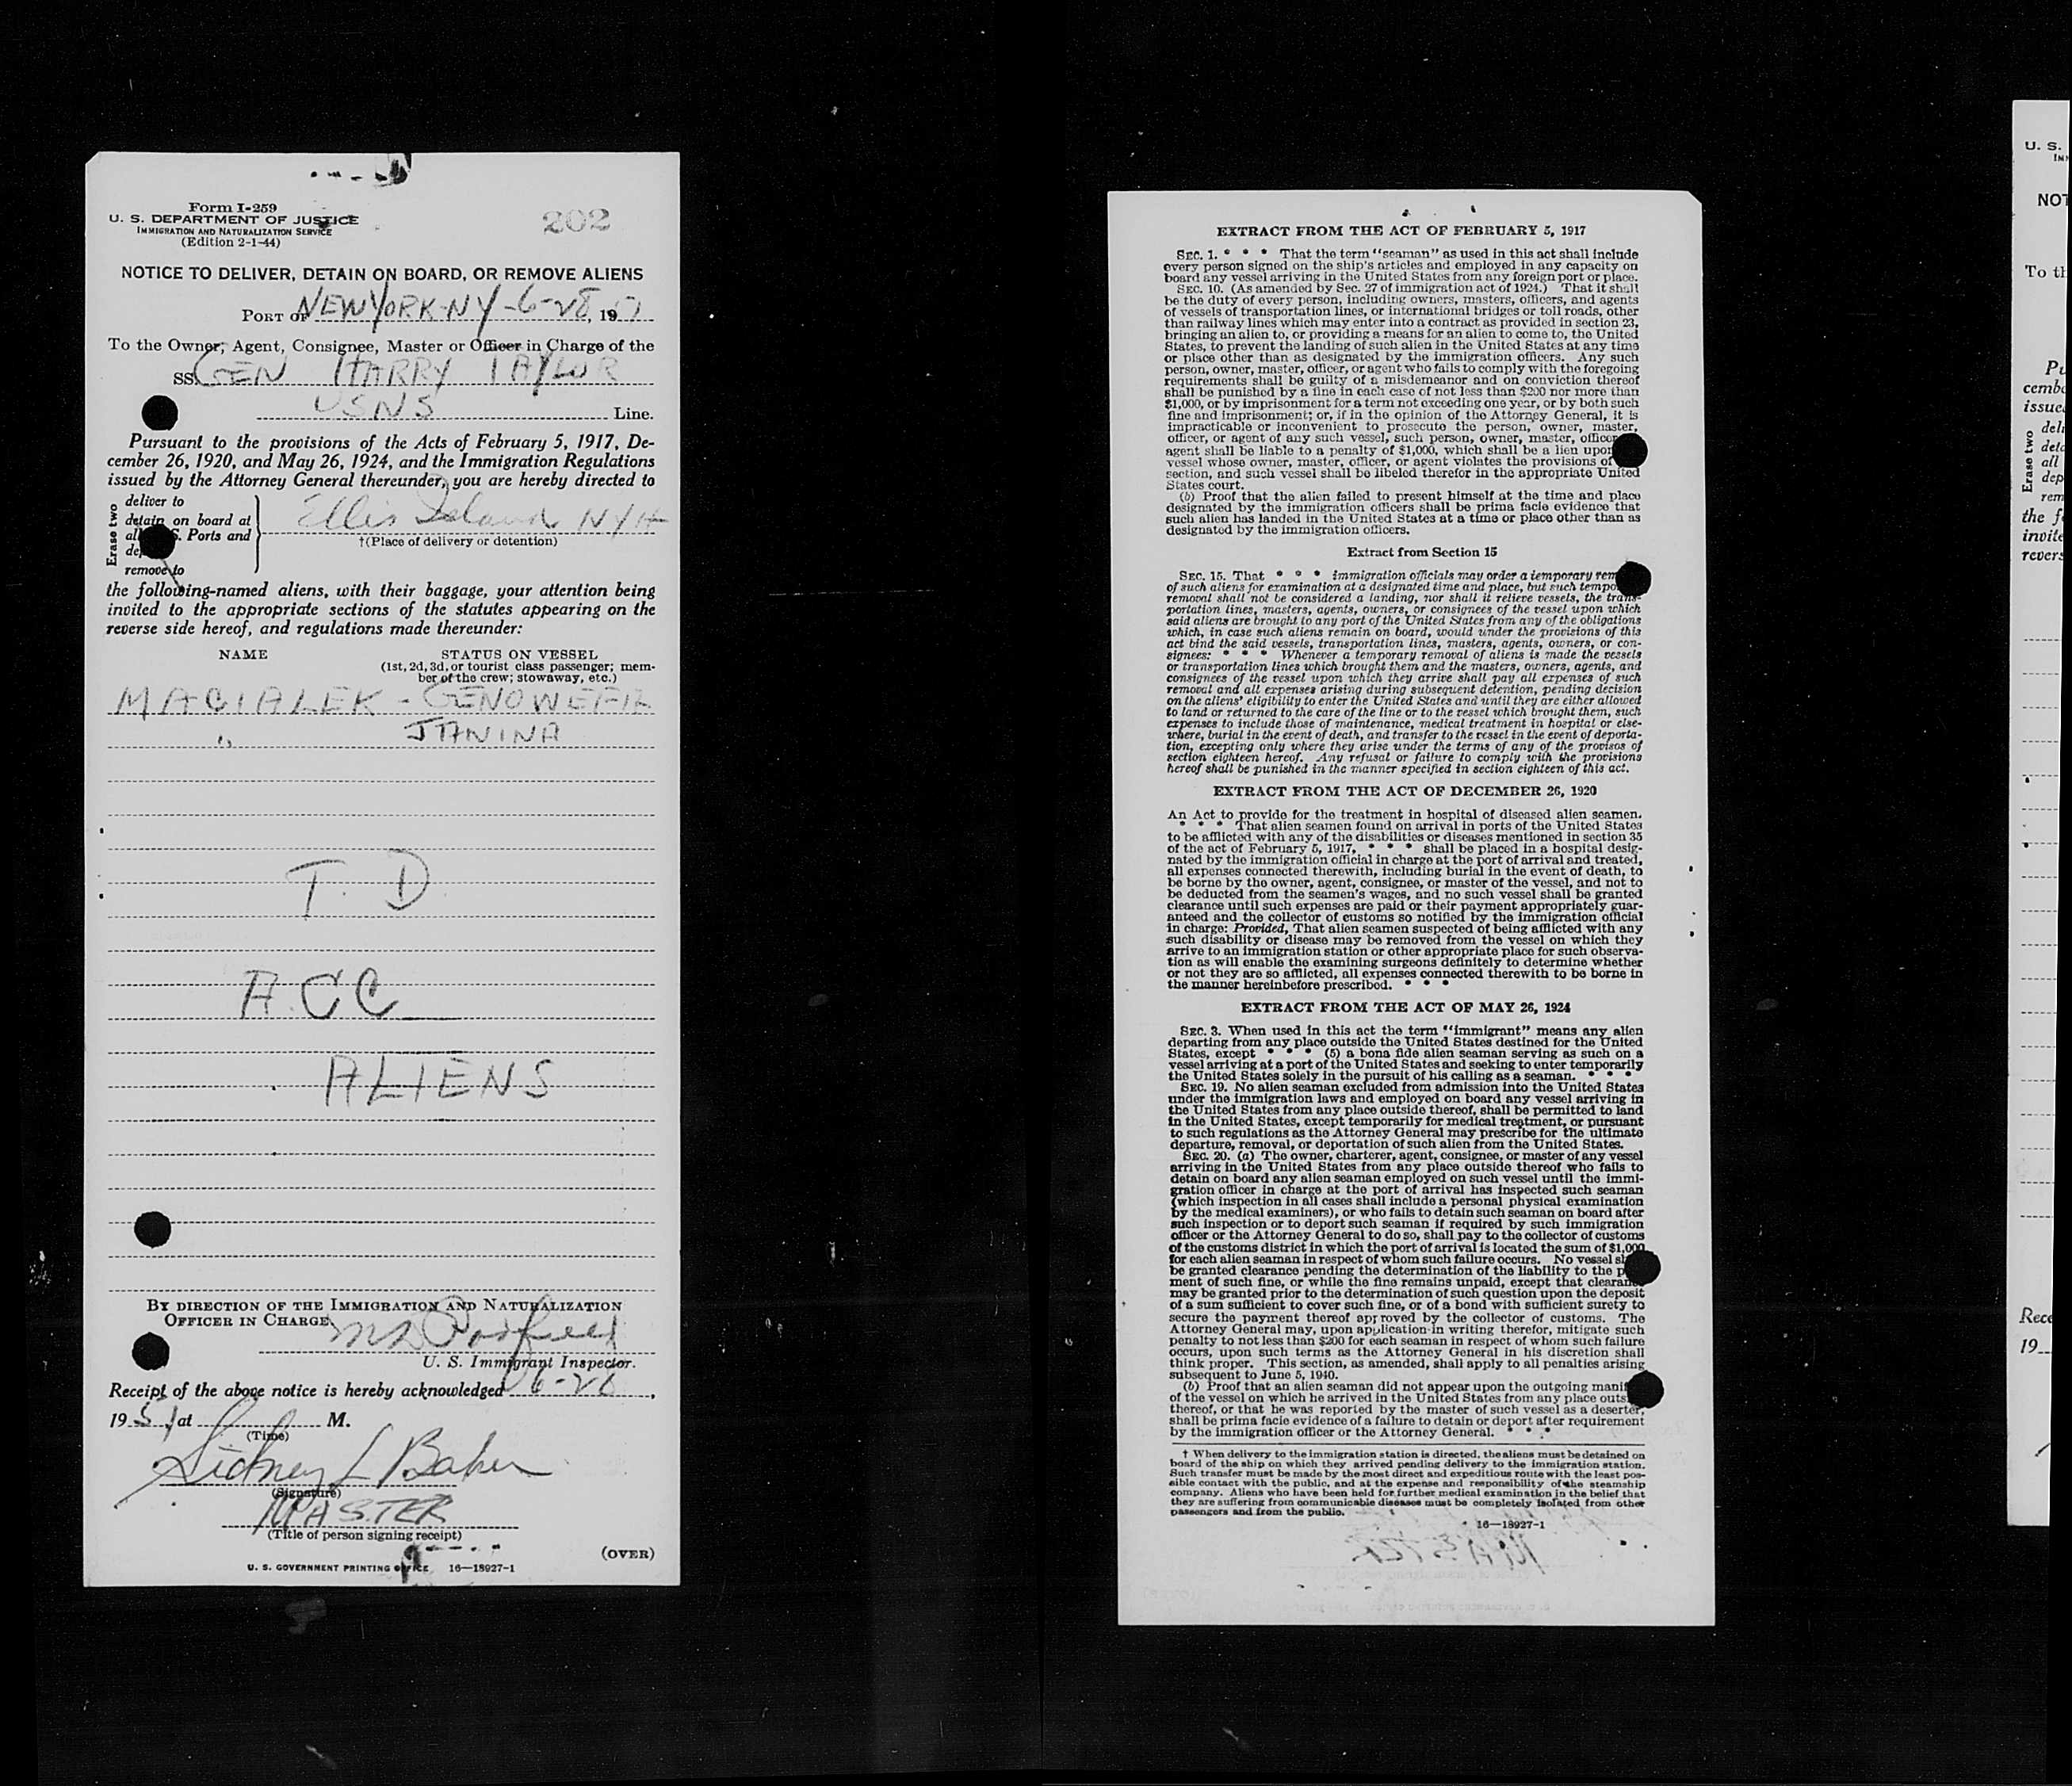 Form I-259
U. S. DEPARTMENT OF JUSTICE
IMMIGRATION AND NATURALIZATION SERVICE
(Edition 2-1-44)
202
NOTICE TO DELIVER, DETAIN ON BOARD, OR REMOVE ALIENS
PORT OF NEW YORK-NY-6-28, 19
To the Owner, Agent, Consignee, Master or Officer in Charge of the
SS. GEN HARRY TAYLOR
USNS Line.
Pursuant to the provisions of the Acts of February 5, 1917, De-
cember 26, 1920, and May 26, 1924, and the Immigration Regulations
issued by the Attorney General thereunder, you are hereby directed to
Erase two
deliver to
detain on board at
all S. Ports and
de
remove to
Ellis Island NYH
†(Place of delivery or detention)
the following-named aliens, with their baggage, your attention being
invited to the appropriate sections of the statutes appearing on the
reverse side hereof, and regulations made thereunder:
NAME STATUS ON VESSEL
(1st, 2d, 3d, or tourist class passenger; mem-
ber of the crew; stowaway, etc.)
MACIALEK - GENOWEFA
" JANINA
T. D
ACC
ALIENS
BY DIRECTION OF THE IMMIGRATION AND NATURALIZATION
OFFICER IN CHARGE.
U. S. Immigrant Inspector.
Receipt of the above notice is hereby acknowledged 6-28,
19 51 at M.
(Time)
Sidney L Baker
(Signature)
MASTER
(Title of person signing receipt)
(OVER)
U. S. GOVERNMENT PRINTING OFFICE 16—18927-1
EXTRACT FROM THE ACT OF FEBRUARY 5, 1917
SEC. 1. * * * That the term "seaman" as used in this act shall include
every person signed on the ship's articles and employed in any capacity on
board any vessel arriving in the United States from any foreign port or place.
SEC. 10. (As amended by Sec. 27 of immigration act of 1924.) That it shall
be the duty of every person, including owners, masters, officers, and agents
of vessels of transportation lines, or international bridges or toll roads, other
than railway lines which may enter into a contract as provided in section 23,
bringing an alien to, or providing a means for an alien to come to, the United
States, to prevent the landing of such alien in the United States at any time
or place other than as designated by the immigration officers. Any such
person, owner, master, officer, or agent who fails to comply with the foregoing
requirements shall be guilty of a misdemeanor and on conviction thereof
shall be punished by a fine in each case of not less than $200 nor more than
$1,000, or by imprisonment for a term not exceeding one year, or by both such
fine and imprisonment; or, if in the opinion of the Attorney General, it is
impracticable or inconvenient to prosecute the person, owner, master,
officer, or agent of any such vessel, such person, owner, master, officer
agent shall be liable to a penalty of $1,000, which shall be a lien upon
vessel whose owner, master, officer, or agent violates the provisions of
section, and such vessel shall be libeled therefor in the appropriate United
States court.
(b) Proof that the alien failed to present himself at the time and place
designated by the immigration officers shall be prima facie evidence that
such alien has landed in the United States at a time or place other than as
designated by the immigration officers.
Extract from Section 15
SEC. 15. That * * * immigration officials may order a temporary rem
of such aliens for examination at a designated time and place, but such tempo
removal shall not be considered a landing, nor shall it relieve vessels, the trans-
portation lines, masters, agents, owners, or consignees of the vessel upon which
said aliens are brought to any port of the United States from any of the obligations
which, in case such aliens remain on board, would under the provisions of this
act bind the said vessels, transportation lines, masters, agents, owners, or con-
signees: * * * Whenever a temporary removal of aliens is made the vessels
or transportation lines which brought them and the masters, owners, agents, and
consignees of the vessel upon which they arrive shall pay all expenses of such
removal and all expenses arising during subsequent detention, pending decision
on the aliens' eligibility to enter the United States and until they are either allowed
to land or returned to the care of the line or to the vessel which brought them, such
expenses to include those of maintenance, medical treatment in hospital or else-
where, burial in the event of death, and transfer to the vessel in the event of deporta-
tion, excepting only where they arise under the terms of any of the provisos of
section eighteen hereof. Any refusal or failure to comply with the provisions
hereof shall be punished in the manner specified in section eighteen of this act.
EXTRACT FROM THE ACT OF DECEMBER 26, 1920
An Act to provide for the treatment in hospital of diseased alien seamen.
* * * That alien seamen found on arrival in ports of the United States
to be afflicted with any of the disabilities or diseases mentioned in section 35
of the act of February 5, 1917, * * * shall be placed in a hospital desig-
nated by the immigration official in charge at the port of arrival and treated,
all expenses connected therewith, including burial in the event of death, to
be borne by the owner, agent, consignee, or master of the vessel, and not to
be deducted from the seamen's wages, and no such vessel shall be granted
clearance until such expenses are paid or their payment appropriately guar-
anteed and the collector of customs so notified by the immigration official
in charge: Provided, That alien seamen suspected of being afflicted with any
such disability or disease may be removed from the vessel on which they
arrive to an immigration station or other appropriate place for such observa-
tion as will enable the examining surgeons definitely to determine whether
or not they are so afflicted, all expenses connected therewith to be borne in
the manner hereinbefore prescribed. * * *
EXTRACT FROM THE ACT OF MAY 26, 1924
SEC. 3. When used in this act the term "immigrant" means any alien
departing from any place outside the United States destined for the United
States, except * * * (5) a bona fide alien seaman serving as such on a
vessel arriving at a port of the United States and seeking to enter temporarily
the United States solely in the pursuit of his calling as a seaman. * * *
SEC. 19. No alien seaman excluded from admission into the United States
under the immigration laws and employed on board any vessel arriving in
the United States from any place outside thereof, shall be permitted to land
in the United States, except temporarily for medical treatment, or pursuant
to such regulations as the Attorney General may prescribe for the ultimate
departure, removal, or deportation of such alien from the United States.
SEC. 20. (a) The owner, charterer, agent, consignee, or master of any vessel
arriving in the United States from any place outside thereof who fails to
detain on board any alien seaman employed on such vessel until the immi-
gration officer in charge at the port of arrival has inspected such seaman
(which inspection in all cases shall include a personal physical examination
by the medical examiners), or who fails to detain such seaman on board after
such inspection or to deport such seaman if required by such immigration
officer or the Attorney General to do so, shall pay to the collector of customs
of the customs district in which the port of arrival is located the sum of $1,000
for each alien seaman in respect of whom such failure occurs. No vessel sh
be granted clearance pending the determination of the liability to the p
ment of such fine, or while the fine remains unpaid, except that clearance
may be granted prior to the determination of such question upon the deposit
of a sum sufficient to cover such fine, or of a bond with sufficient surety to
secure the payment thereof approved by the collector of customs. The
Attorney General may, upon application in writing therefor, mitigate such
penalty to not less than $200 for each seaman in respect of whom such failure
occurs, upon such terms as the Attorney General in his discretion shall
think proper. This section, as amended, shall apply to all penalties arising
subsequent to June 5, 1940.
(b) Proof that an alien seaman did not appear upon the outgoing manif
of the vessel on which he arrived in the United States from any place outs
thereof, or that he was reported by the master of such vessel as a deserter,
shall be prima facie evidence of a failure to detain or deport after requirement
by the immigration officer or the Attorney General. * * *
† When delivery to the immigration station is directed, the aliens must be detained on
board of the ship on which they arrived pending delivery to the immigration station.
Such transfer must be made by the most direct and expeditious route with the least pos-
sible contact with the public, and at the expense and responsibility of the steamship
company. Aliens who have been held for further medical examination in the belief that
they are suffering from communicable diseases must be completely isolated from other
passengers and from the public.
16—18927-1
U. S.
NOT
To th
Pu
cembe
issued
Erase two
deli
deta
all
dep
rem
the f
invite
revers
Rece
19